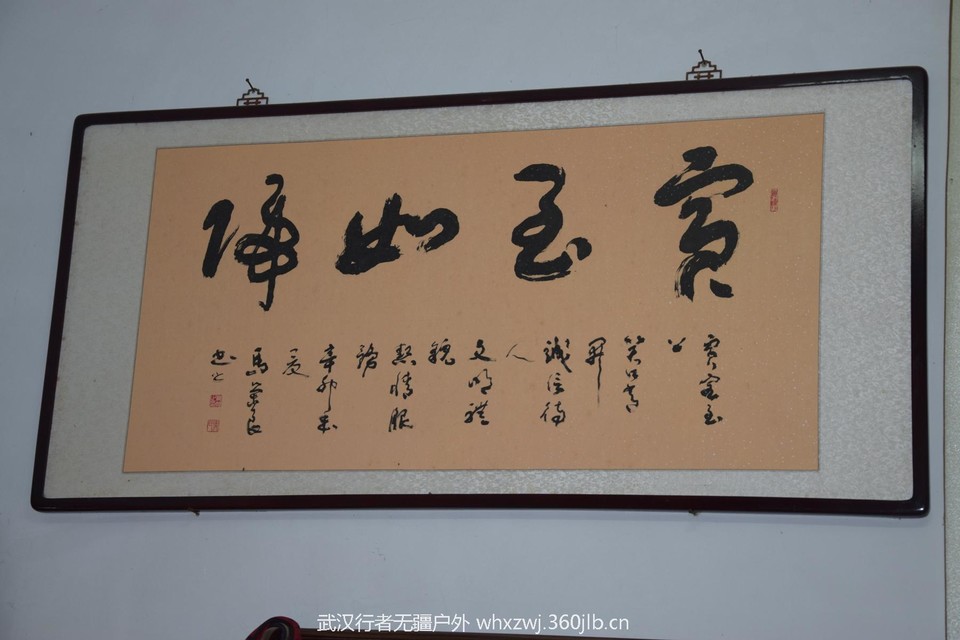 賓至如歸
賓客至
上
笑口常
開
誠信待
人
文明禮
貌
熱情服
務
辛卯
夏
馬 良
書
武汉行者无疆户外 whxzwj.360jlb.cn